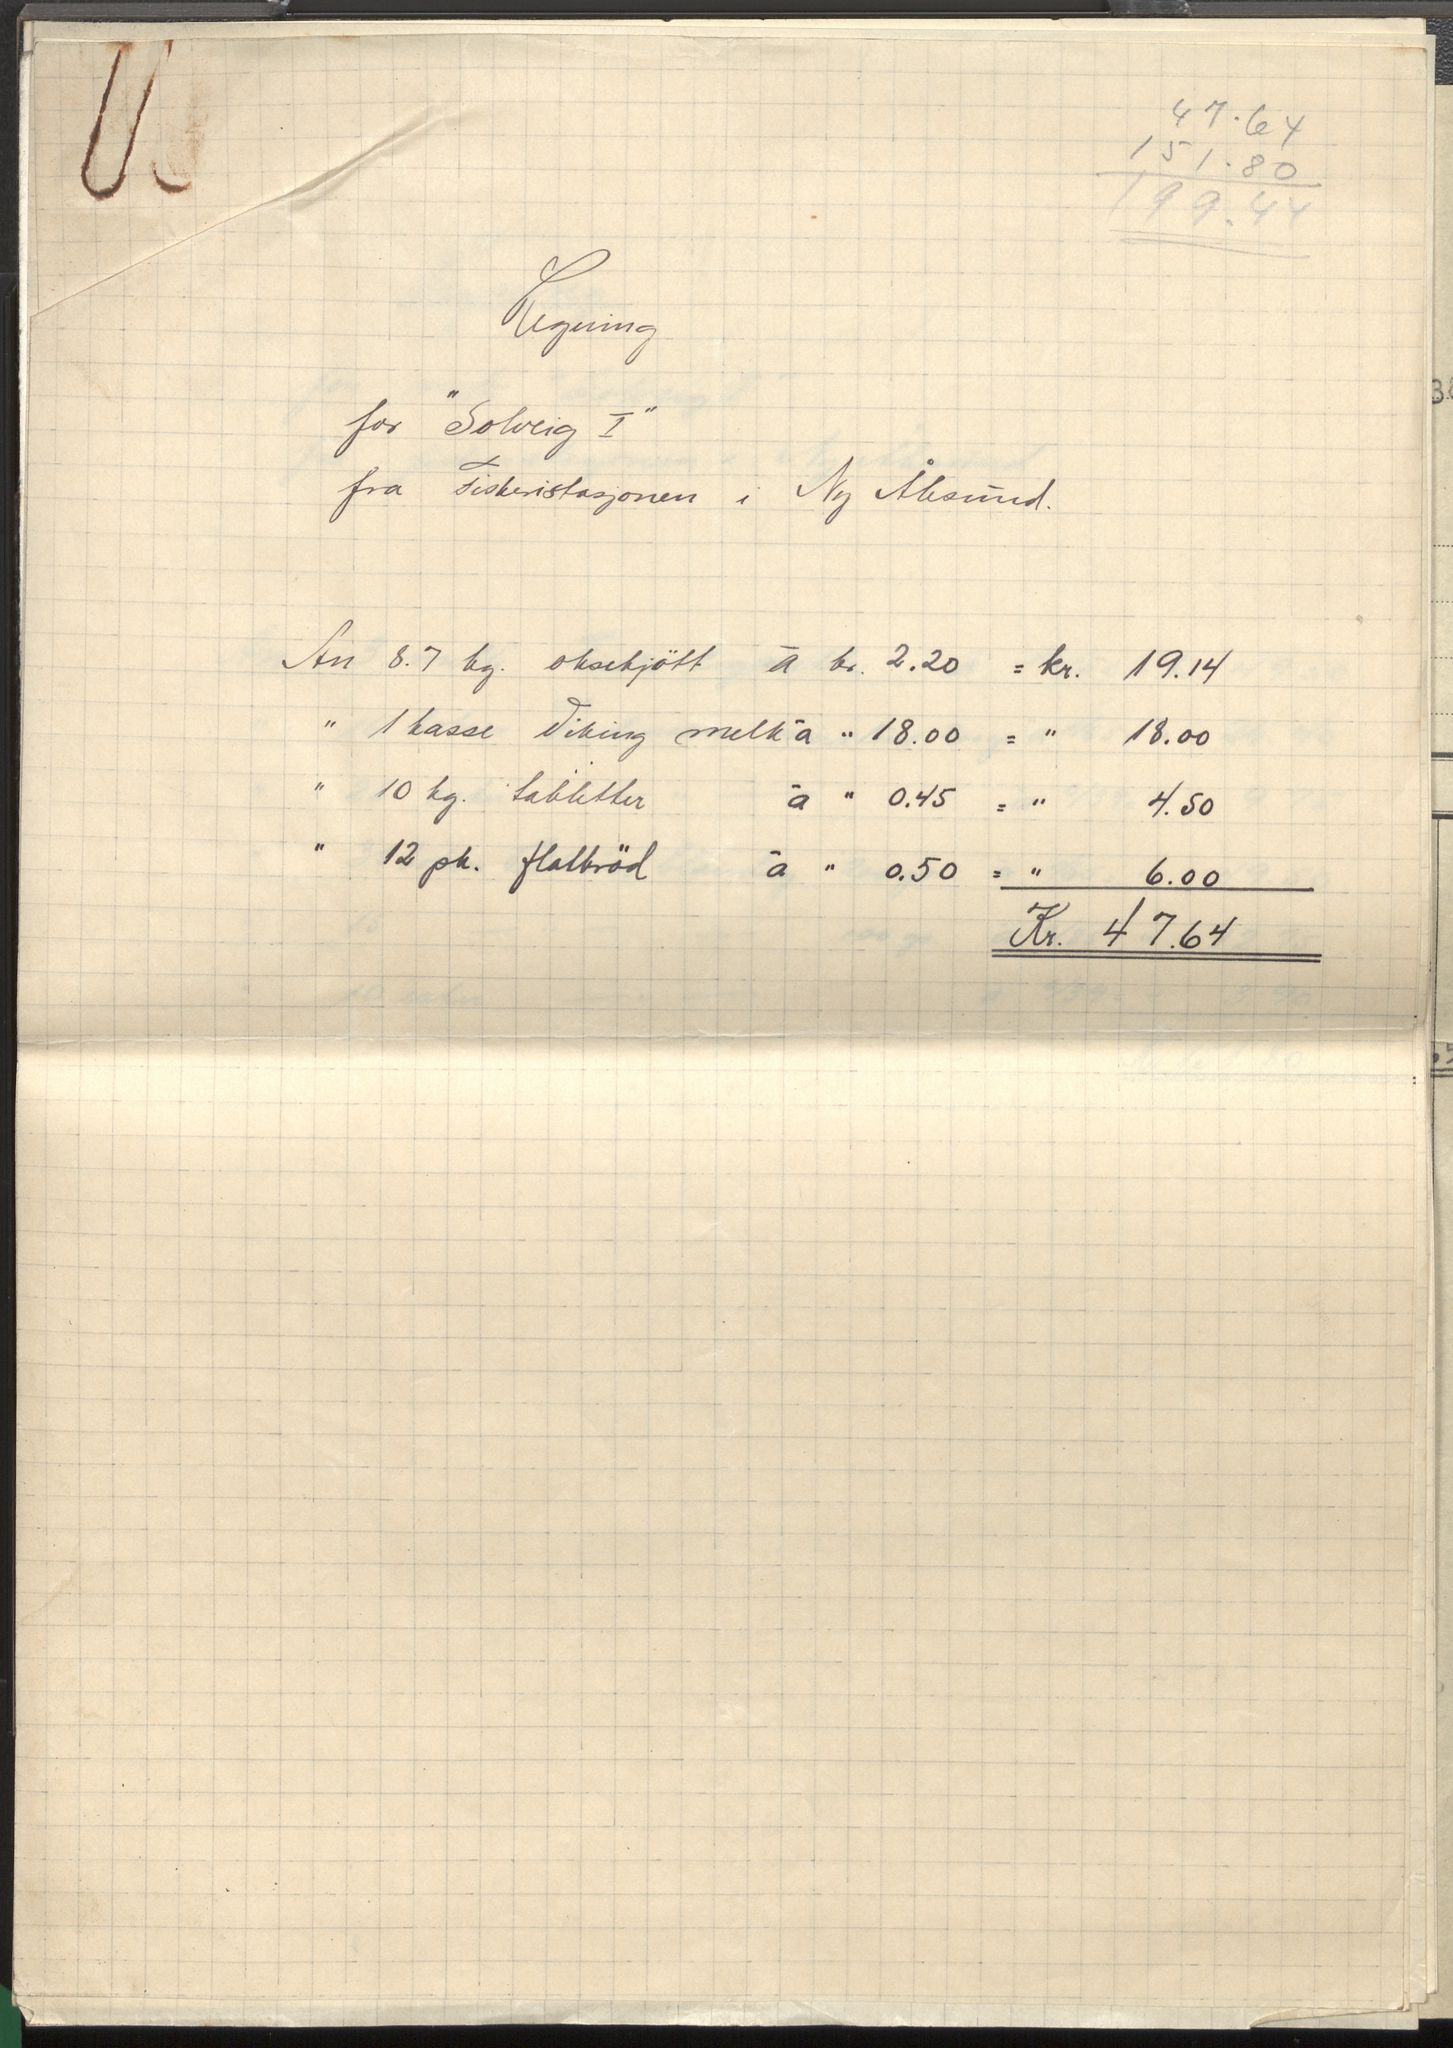 47.64
151.80
199.44
Regning
for "Solveig I"
fra Fiskeristasjonen i Ny Ålesund.
An 8.7 kg. oksekjött à kr. 2.20 = kr. 19.14
" 1 kasse Viking melk à " 18.00 = " 18.00
" 10 kg. tabletter à " 0.45 = " 4.50
" 12 pk. flatbröd à " 0.50 = " 6.00
Kr. 47.64